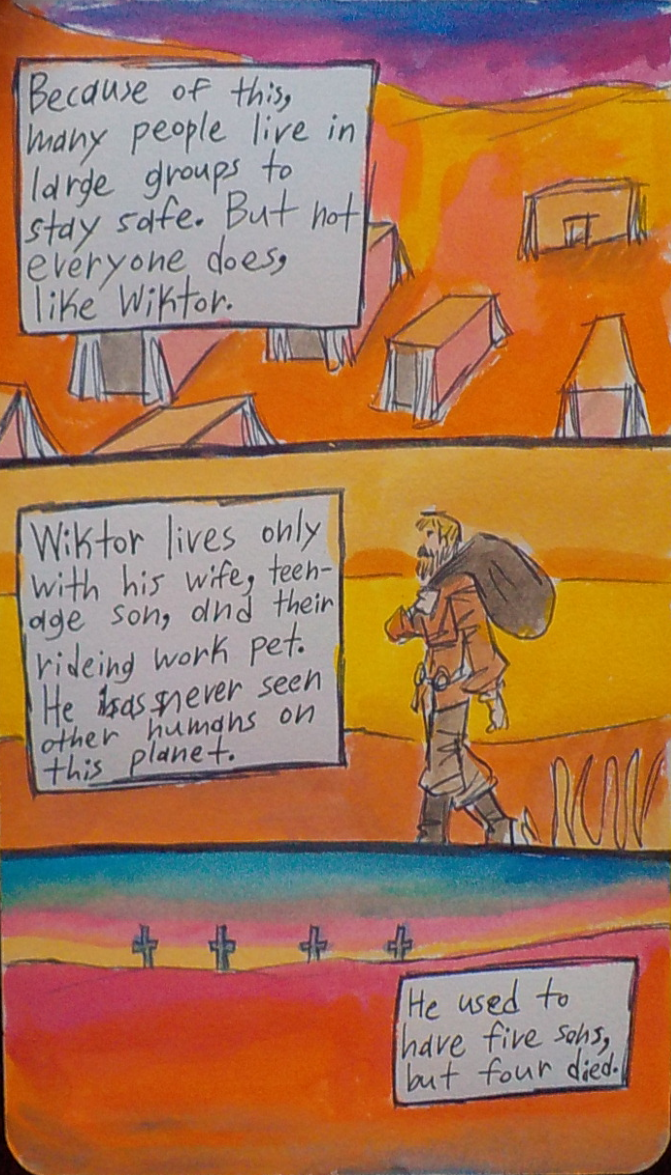 Because of this,
many people live in
large groups to
stay safe. But not
everyone does,
like Wiktor.
Wiktor lives only
with his wife, teen-
age son, and their
rideing work pet.
He has never seen
other humans on
this planet.
He used to
have five sons,
but four died.